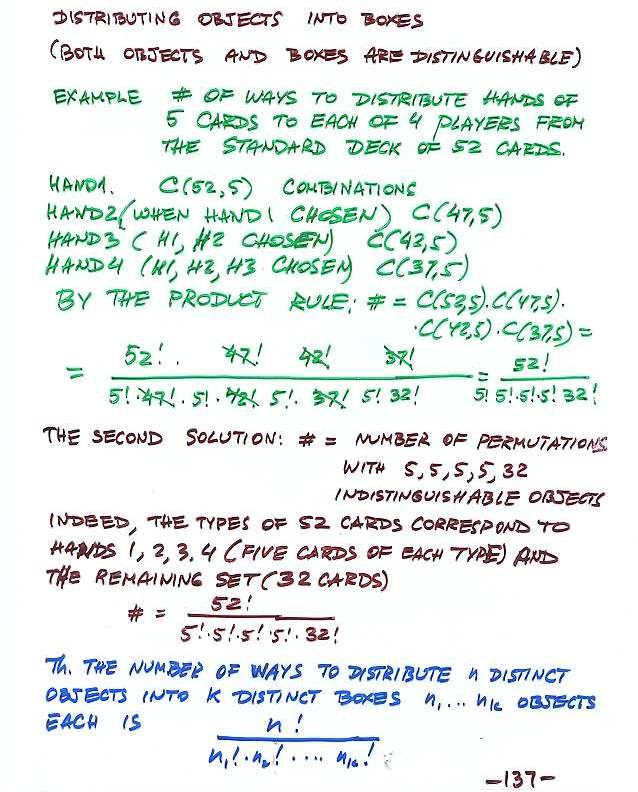 DISTRIBUTING OBJECTS INTO BOXES
(BOTH OBJECTS AND BOXES ARE DISTINGUISHABLE)
EXAMPLE # OF WAYS TO DISTRIBUTE HANDS OF
5 CARDS TO EACH OF 4 PLAYERS FROM
THE STANDARD DECK OF 52 CARDS.
HAND1. C(52,5) COMBINATIONS
HAND2 (WHEN HAND1 CHOSEN) C(47,5)
HAND3 (H1, H2 CHOSEN) C(42,5)
HAND4 (H1, H2, H3 CHOSEN) C(37,5)
BY THE PRODUCT RULE: # = C(52,5).C(47,5).
.C(42,5).C(37,5) =
= 52! . 47! 42! 37! / 5!.47!.5!.42! 5!. 37! 5! 32! = 52! / 5! 5!.5!.5! 32!
THE SECOND SOLUTION: # = NUMBER OF PERMUTATIONS
WITH 5,5,5,5,32
INDISTINGUISHABLE OBJECTS
INDEED, THE TYPES OF 52 CARDS CORRESPOND TO
HANDS 1, 2, 3, 4 (FIVE CARDS OF EACH TYPE) AND
THE REMAINING SET (32 CARDS)
# = 52! / 5!.5!.5!.5!.32!
Th. THE NUMBER OF WAYS TO DISTRIBUTE n DISTINCT
OBJECTS INTO K DISTINCT BOXES n₁,... nₖ OBJECTS
EACH IS n! / n₁!.n₂! .... nₖ!
-137-